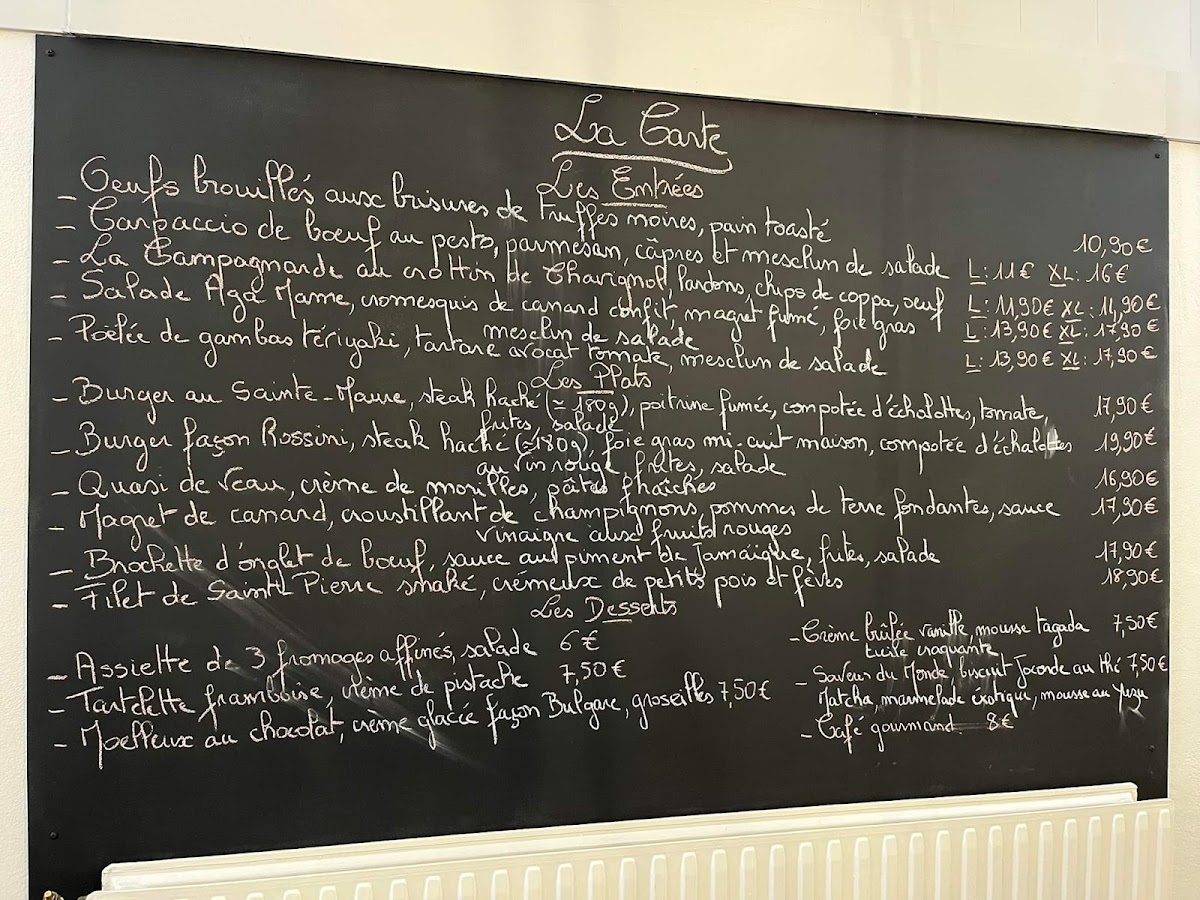 La Carte
Les Entrées
- Oeufs brouillés aux brisures de truffes noires, pain toasté 10,90€
- Carpaccio de boeuf au pesto, parmesan, câpres et mesclun de salade L: 11€ XL: 16€
- La Campagnarde au crottin de Chavignol, lardons, chips de coppa, oeuf L: 11,90€ XL: 14,90€
- Salade Aga Mame, cromesquis de canard confit, magret fumé, foie gras L: 13,90€ XL: 17,90€
mesclun de salade
- Poêlée de gambas tériyaki, tartare avocat tomate, mesclun de salade L: 13,90€ XL: 17,90€
Les Plats
- Burger au Sainte-Maure, steak haché (≃180g), poitrine fumée, compotée d'échalottes, tomate, 17,90€
frites, salade
- Burger façon Rossini, steak haché (≃180g), foie gras mi-cuit maison, compotée d'échalottes 19,90€
au vin rouge, frites, salade
- Quasi de veau, crème de morilles, pâtes fraîches 16,90€
- Magret de canard, croustillant de champignons, pommes de terre fondantes, sauce 17,90€
vinaigre aux fruits rouges
- Brochette d'onglet de boeuf, sauce au piment de Jamaïque, frites, salade 17,90€
- Filet de Saint Pierre snaké, crémeux de petits pois et fèves 18,90€
Les Desserts
- Assiette de 3 fromages affinés, salade 6€
- Tartelette framboise, crème de pistache 7,50€
- Moelleux au chocolat, crème glacée façon Bulgare, groseilles 7,50€
- Crème brûlée vanille, mousse tagada 7,50€
tuile craquante
- Saveur du Monde, biscuit Joconde au thé 7,50€
Matcha, marmelade éxotique, mousse au Yuzu
- Café gourmand 8€